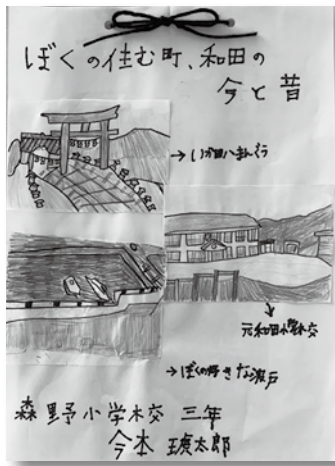 ぼくの住む町、和田の
今と昔
→いわ田八まんぐう
元和田小学校
→ぼくの好きな瀬戸
森野小学校 三年
今本 琥太郎